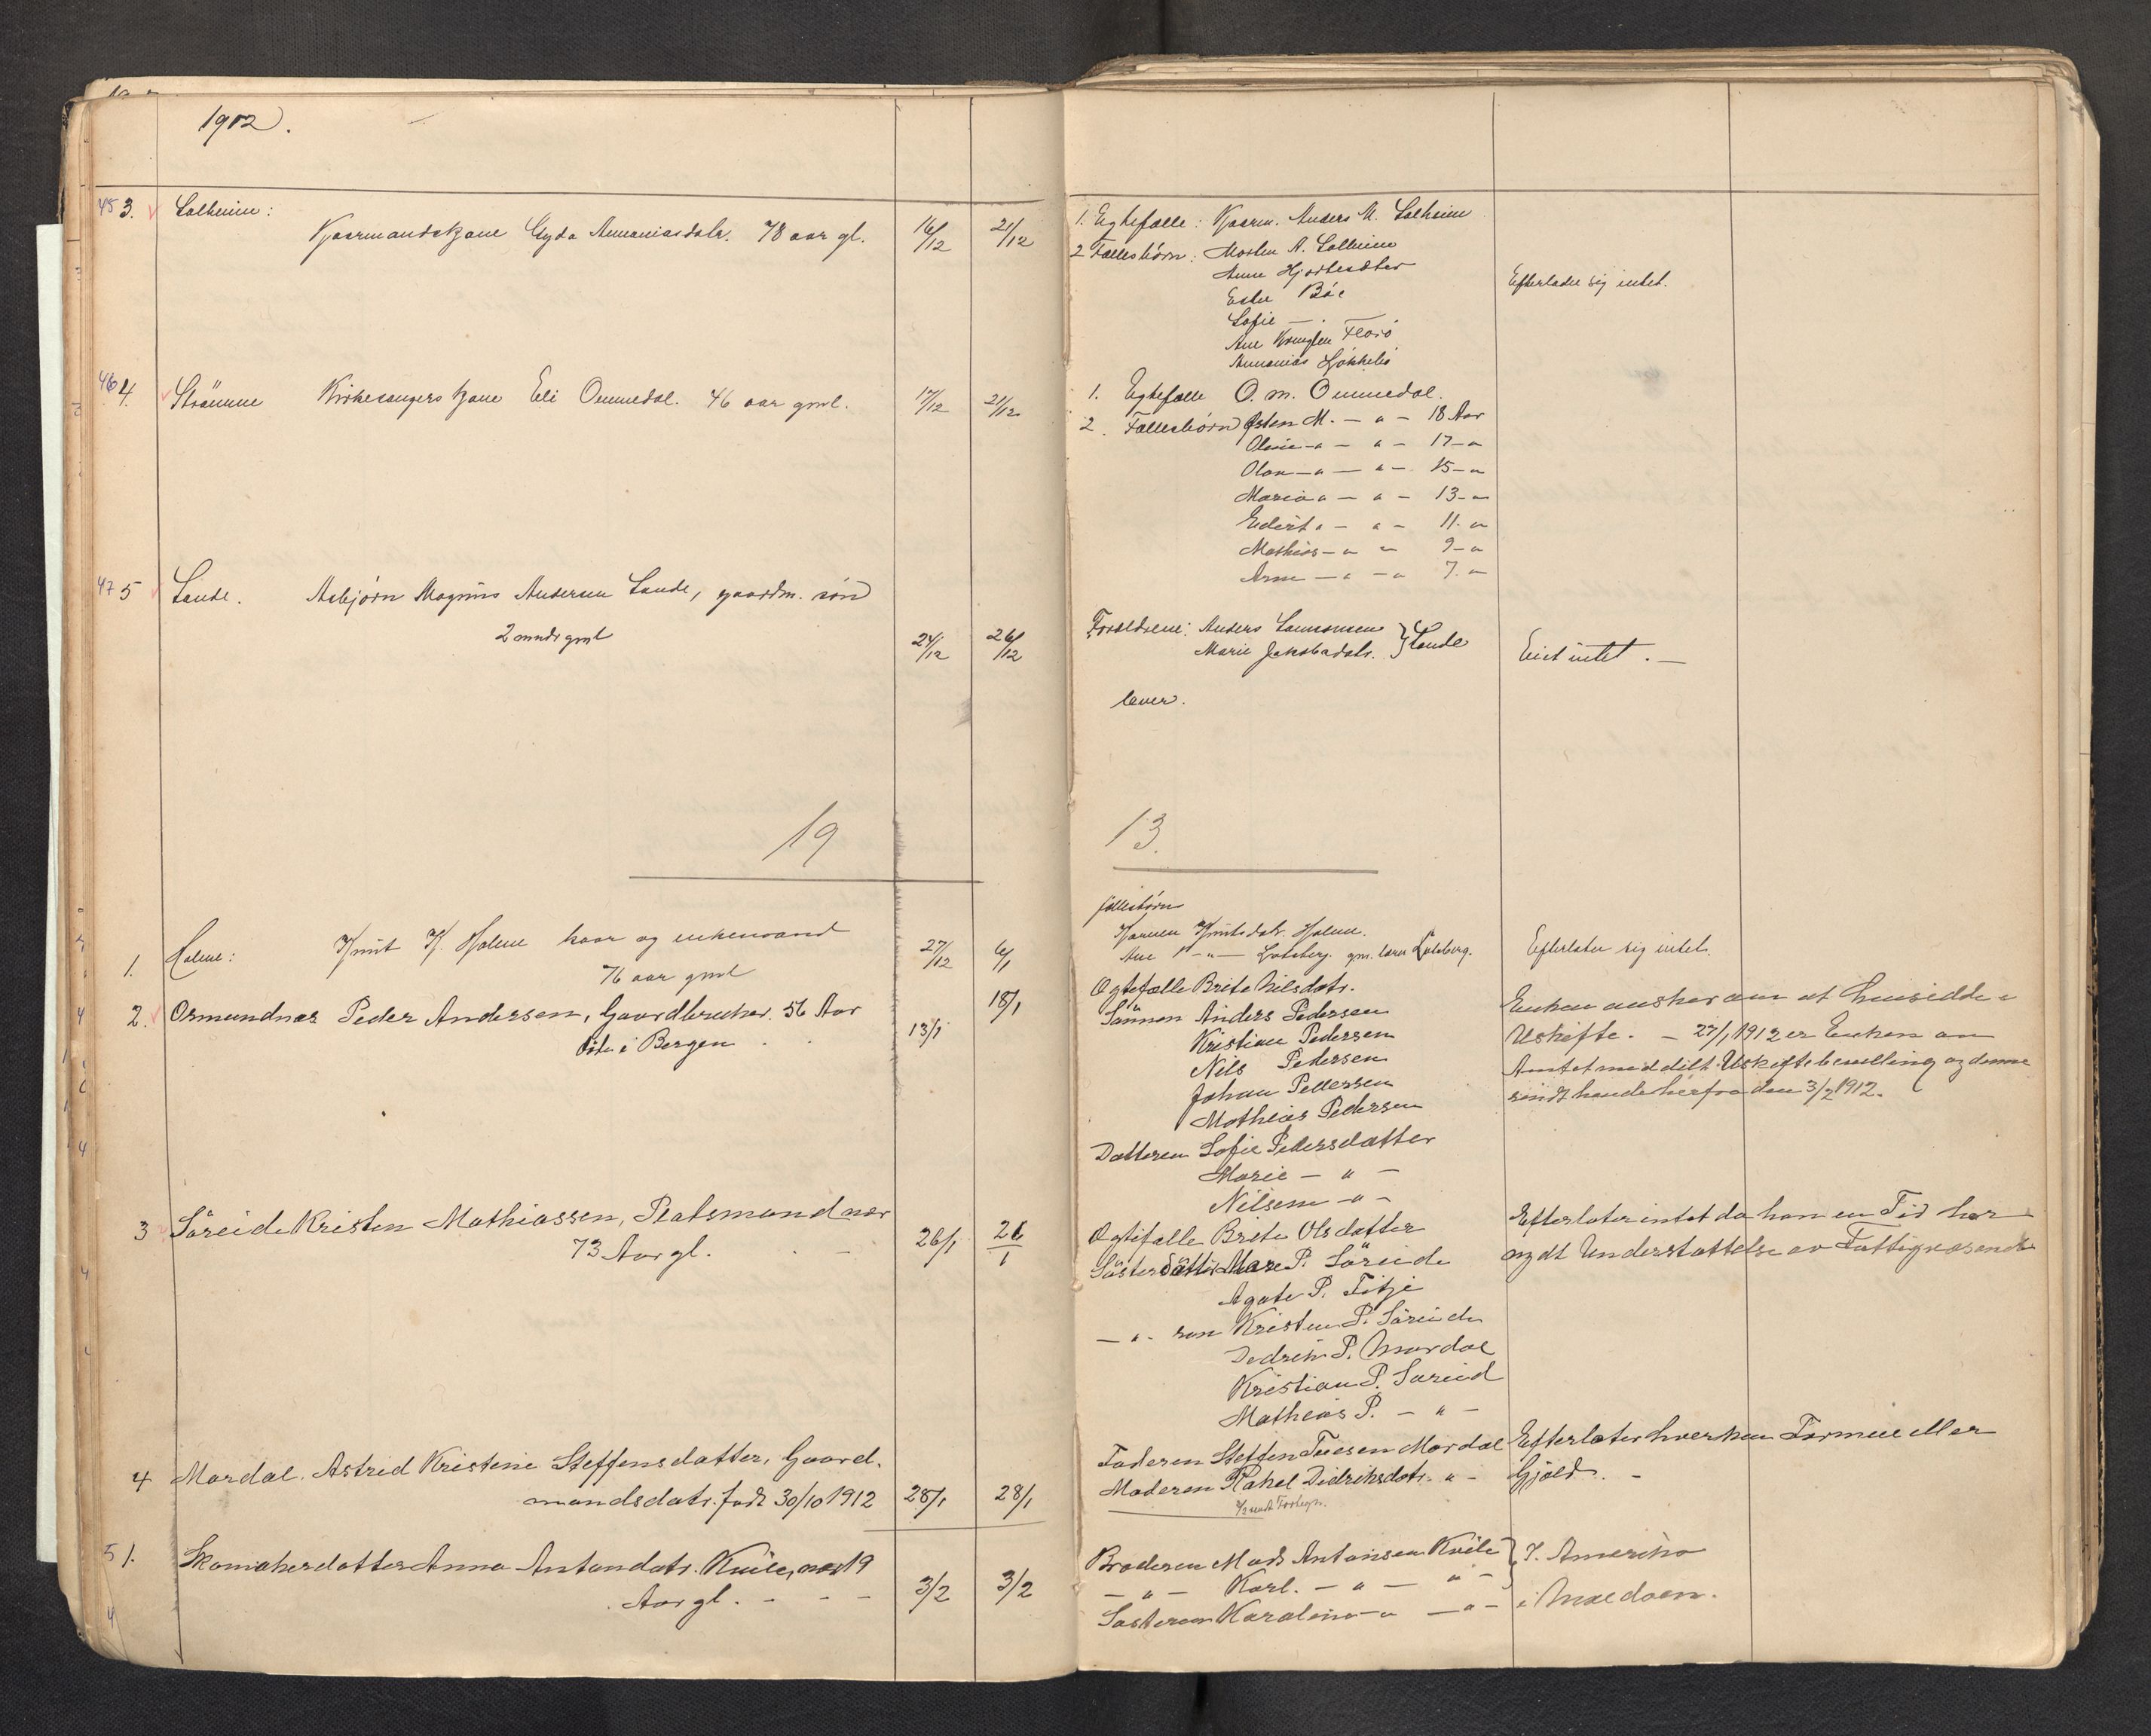 1912.
45 3. Solheim:
Kaarmandskone Gyda Ananiasdatr. 78 aar gl. 16/12 21/12
1. Egtefælle: Kaarm. Anders M. Solheim
2 Fællesbörn: Morten A. Solheim
Anne Hjortesæter
Ester Böe
Sofie — . —
Ane Kringlen Florö
Ananias Hökkelö
Efterlader sig intet.
46 4. Strömme Kirkesangers Kone Eli Ommedal. 46 aar gml. 17/12 21/12
1. Egtefælle O. M. Ommedal.
2. Fællesbörn Østen M. — " — 18 Aar
Oline — " — " — 17 — "
Olav — " — " — 15 — "
Maria " — " — 13 — "
Endert " — " — 11. "
Mathias — " " 9 — "
Arne — " — " 7. "
47 5 Sande. Asbjörn Magnus Andersen Sande, gaardm. sön
2 mndr gml 24/12 26/12
Forældrene: Anders Samsonsen } Sande
Marie Jakobsdatr.
lever.
Eiet intet. —
19
13.
1. Holme: Knut K. Holme kaar og enkemand
76 aar gml 27/12 6/1
fællesbörn
Karen Knutsdatr. Holme.
Ane K — " — Lotsberg. gm. Lars Lotsberg.
Efterlater sig intet.
2. Osmundnes Peder Andersen, Gaardbruker. 56 Aar
Döde i Bergen . . 13/1 18/1
Ogtefælle Brite Nilsdatr.
Sönnen Anders Pedersen
Kristian Pedersen
Nils Pedersen
Johan Pedersen
Mathias Pedersen
Datteren Sofie Pedersdatter
Marie — " —
Nilsene — " —
Enken ansker om at hensidde i
Uskifte. — 27/1 1912 er Enken av
Amtet meddelt Uskiftebevilling og denne
sendt hende herfra den 3/2 1912.
3 Söreide Kristen Mathiassen, Platsmand nær
73 Aar gl. . — 26/1 26/1
Ogtefælle Brite Olsdatter
Sösterdåtter Mare P. Söreide
Agate P. Fitje
— " — sön Kristen P. Söreide
Dedrik P. Mardal
Kristian P. Söreid
Mathias P. — " —
Efterlater intet da han en Tid har
nydt Understøttelse av Fattigvæsenet
4 Mardal. Astrid Kristine Steffensdatter, Gaard-
mandsdatr. født 30/10 1912 28/1 28/1
Faderen Steffen Tuesen Mardal
Moderen Rakel Didriksdatr. " —
Efterlater hverken Formue eller
Gjæld. —
5 1. Skomakerdatter Anna Antondatr. Kvile, nær 19
Aar gl. - - - 3/2 3/2
Broderen Mads Antonsen Kvile } I. Amerika
— " — Karl. — " — " —
Søsteren Karoline — " — " — i Møldøen.